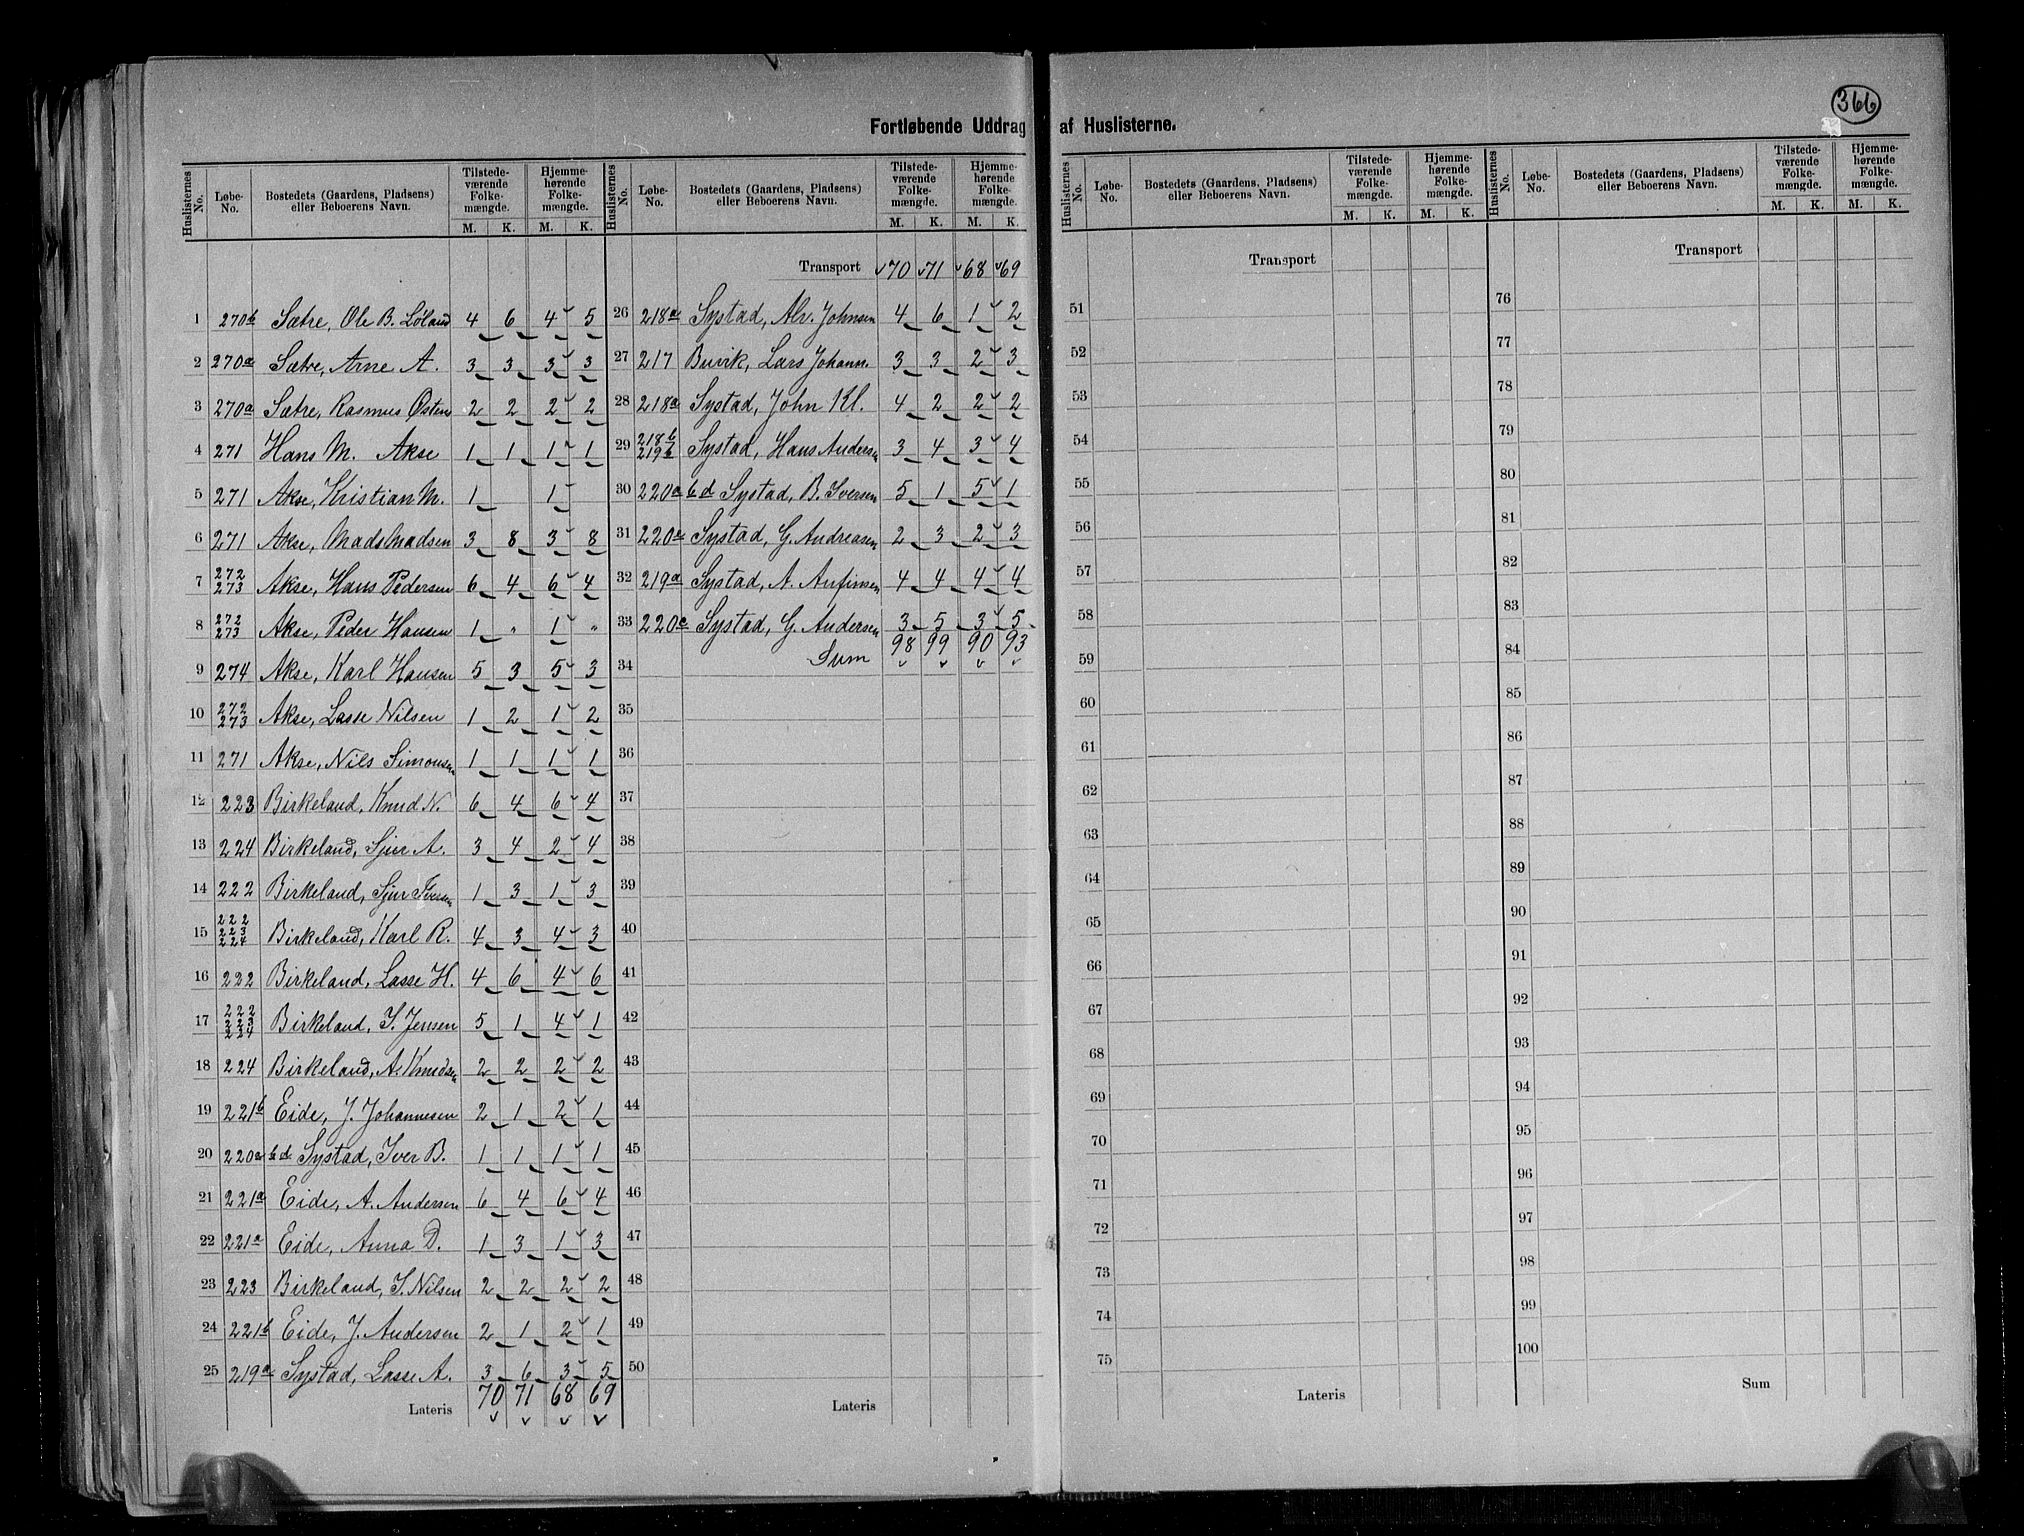 366
Fortløbende Uddrag af Huslisterne.
Huslisternes No. Løbe-No. Bostedets (Gaardens, Pladsens) eller Beboerens Navn. Tilstedeværende Folkemængde. M. K. Hjemmehørende Folkemængde. M. K.
1 270b Sætre, Ole B. Løland 4 6 4 5
2 270a Sætre, Arne A. 3 3 3 3
3 270a Sætre, Rasmus Østens 2 2 2 2
4 271 Hans M. Akse 1 1 1 1
5 271 Akse, Kristian M. 1 1
6 271 Akse, Mads Madsen 3 8 3 8
7 272 273 Akse, Hans Pedersen 6 4 6 4
8 272 273 Akse, Peder Hansen 1 " 1 "
9 274 Akse, Karl Hansen 5 3 5 3
10 272 273 Akse, Lasse Nilsen 1 2 1 2
11 271 Akse, Nils Simonsen 1 1 1 1
12 223 Birkeland, Knud N. 6 4 6 4
13 224 Birkeland, Sjur A. 3 4 2 4
14 222 Birkeland, Sjur Iversen 1 3 1 3
15 222 223 224 Birkeland, Karl R. 4 3 4 3
16 222 Birkeland, Lasse H. 4 6 4 6
17 222 223 224 Birkeland, I. Jensen 5 1 4 1
18 224 Birkeland, A. Knudsen 2 2 2 2
19 221b Eide, J. Johannesen 2 1 2 1
20 220a bd Systad, Iver B. 1 1 1 1
21 221a Eide, A. Andersen 6 4 6 4
22 221a Eide, Anna D. 1 3 1 3
23 223 Birkeland, I. Nilsen 2 2 2 2
24 221b Eide, J. Andersen 2 1 2 1
25 219a Systad, Lasse A. 3 6 3 5
Lateris 70 71 68 69
Huslisternes No. Løbe-No. Bostedets (Gaardens, Pladsens) eller Beboerens Navn. Tilstedeværende Folkemængde. M. K. Hjemmehørende Folkemængde. M. K.
Transport 70 71 68 69
26 218a Systad, Alv. Johnsen 4 6 1 2
27 217 Buvik, Lars Johann. 3 3 2 3
28 218a Systad, John Kl. 4 2 2 2
29 218b 219b Systad, Hans Andersen 3 4 3 4
30 220a bd Systad, B. Iversen 5 1 5 1
31 220a Systad, G. Andreasen 2 3 2 3
32 219a Systad, A. Anfinsen 4 4 4 4
33 220c Systad, G. Andersen 3 5 3 5
34 Sum 98 99 90 93
35
36
37
38
39
40
41
42
43
44
45
46
47
48
49
50
Lateris
Huslisternes No. Løbe-No. Bostedets (Gaardens, Pladsens) eller Beboerens Navn. Tilstedeværende Folkemængde. M. K. Hjemmehørende Folkemængde. M. K.
Transport
51
52
53
54
55
56
57
58
59
60
61
62
63
64
65
66
67
68
69
70
71
72
73
74
75
Lateris
Huslisternes No. Løbe-No. Bostedets (Gaardens, Pladsens) eller Beboerens Navn. Tilstedeværende Folkemængde. M. K. Hjemmehørende Folkemængde. M. K.
Transport
76
77
78
79
80
81
82
83
84
85
86
87
88
89
90
91
92
93
94
95
96
97
98
99
100
Sum